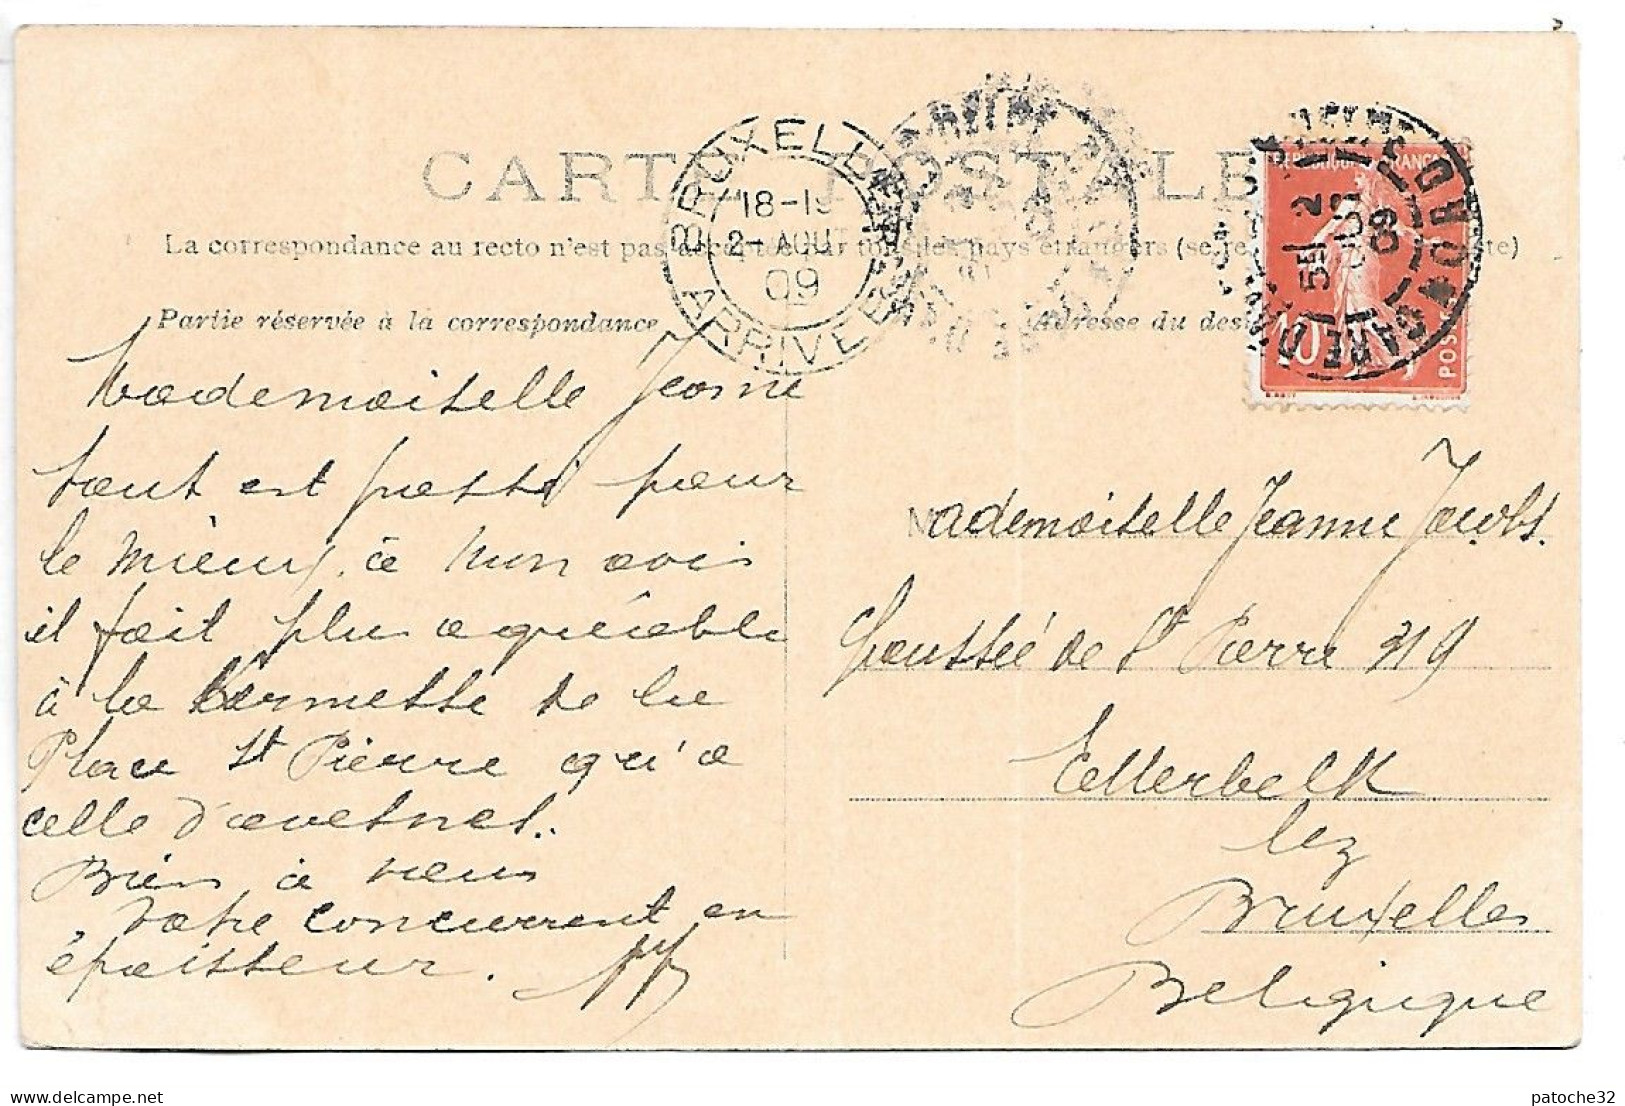 CARTE POSTALE
La correspondance au recto n'est pas acceptée par tous les pays étrangers (se re
Partie réservée à la correspondance
Adresse du dest
BRUXELLES
18-19
2- AOUT
09
ARRIVEE
REPUBLIQUE FRANCAISE
10
POSTES
GARE DU NORD
5E 2
09
Mademoiselle Jeanne
tout est passé pour
le mieux, à mon avis
il fait plus agréable
à la kermesse de la
Place St Pierre qu'a
celle d'avesnes.
Bien à vous
votre concurrent en
épaisseur.
Mademoiselle Jeanne Jacobs.
Chaussée de St Pierre 319
Etterbeek
lez
Bruxelles
Belgique
patoche32